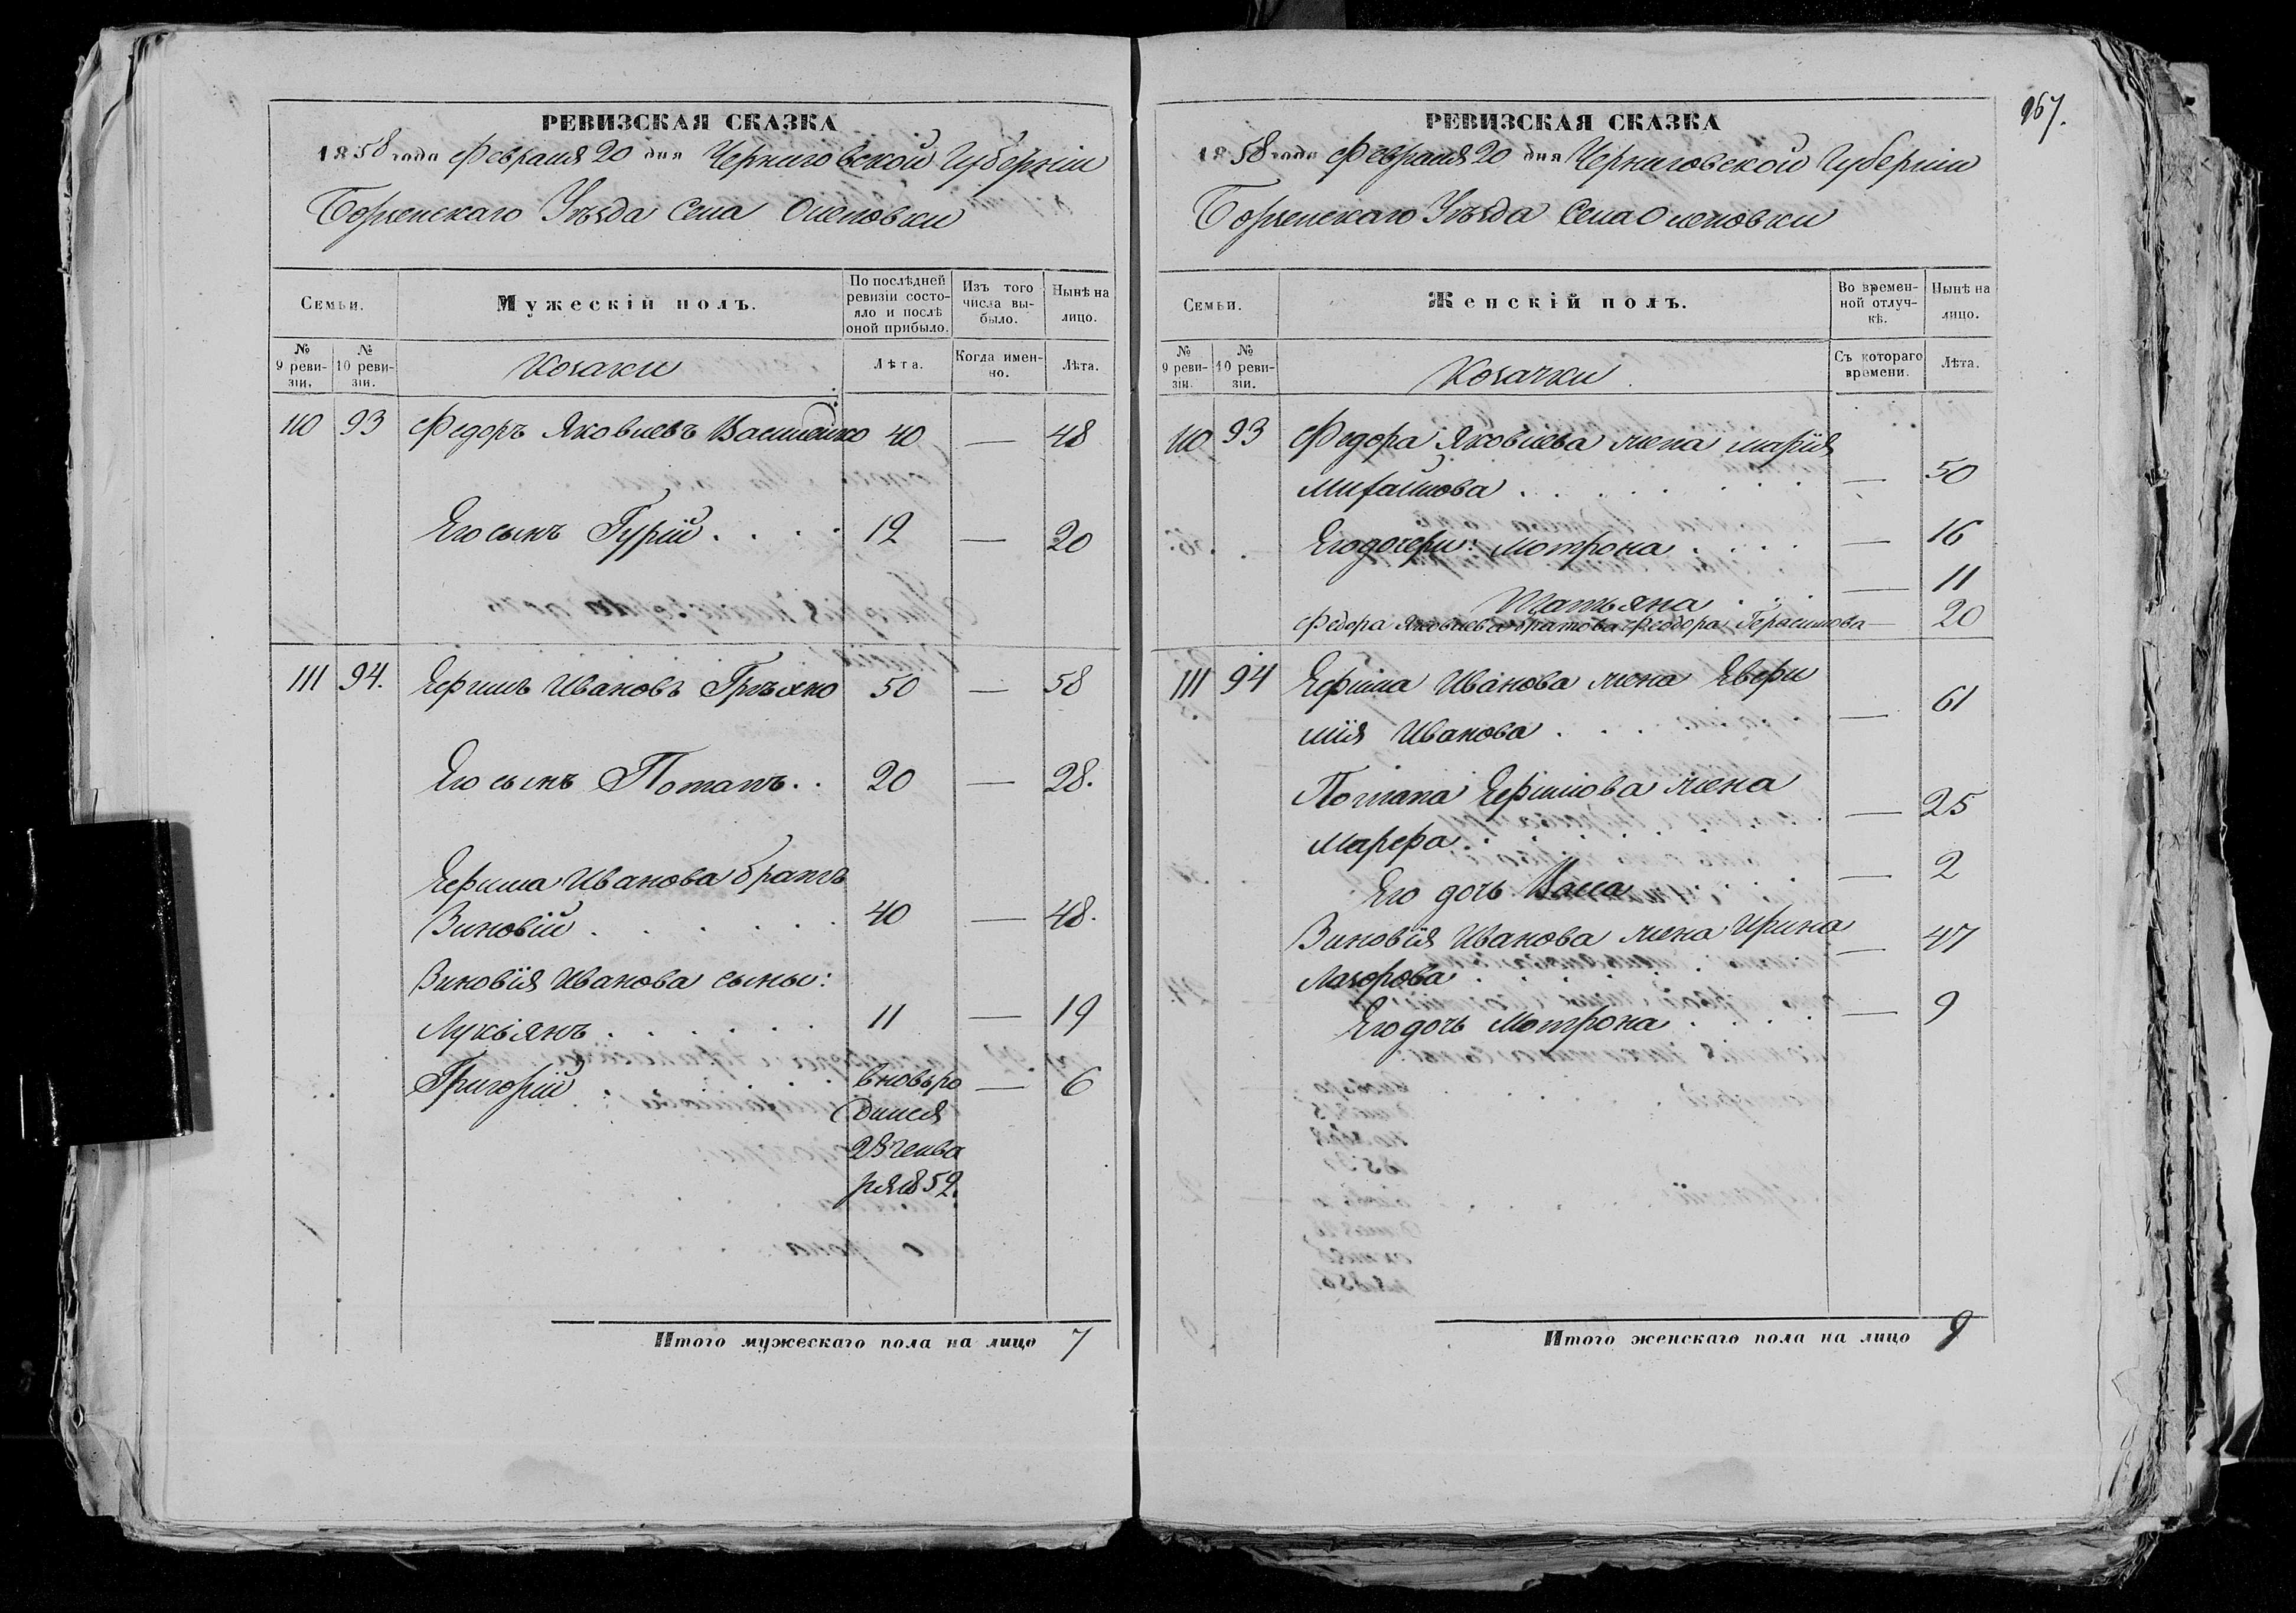 РЕВИЗСКАЯ СКАЗКА
1858 года Февраля 20 дня Черниговской Губерніи
Борзенскаго Уѣзда Села Оленовки
Семьи.
Мужескій полъ.
По послѣдней ревизіи состояло и послѣ оной прибыло.
Изъ того числа выбыло.
Нынѣ на лицо.
№ 9 ревизіи.
№ 10 ревизіи.
Козаки
Лѣта.
Когда именно.
Лѣта.
110 93 Федоръ Яковлевъ Василенко 40 — 48
Его сынъ Гурій . . . . 12 — 20
111 94. Ефимъ Ивановъ 50 — 58
Его сынъ Потапъ . . 20 — 28.
Ефима Иванова братъ
Зиновій . . . . . . 40 — 48.
Зиновія Иванова сыны:
Лукьянъ . . . . . . 11 — 19
Григорій вновьро — 6
дился
генва
ря 1852.
Итого мужескаго пола на лицо 7
967.
РЕВИЗСКАЯ СКАЗКА
1858 года Февраля 20 дня Черниговской Губерніи
Борзенскаго Уѣзда Села Оленовки
Семьи.
Женскій полъ.
Во временной отлучкѣ.
Нынѣ на лицо.
№ 9 ревизіи.
№ 10 ревизіи.
Козачки
Съ котораго времени.
Лѣта.
110 93 Федора Яковлева жена Марія
Михайлова . . . . . . . — 50
Его дочери: Мотрона . . . . — 16
Татьяна . . . — 11
Федора Яковлева братова Феодора Герасимова — 20
111 94 Ефима Иванова жена Евфи
мія Иванова . . . . — 61
Потапа Ефимова жена
Марфа . . . . . . . — 25
Его дочь Васса . . . . — 2
Зиновія Иванова жена Ирина — 47
Лазорова . . . . . .
Его дочь Мотрона . . . . — 9
Итого женскаго пола на лицо 9